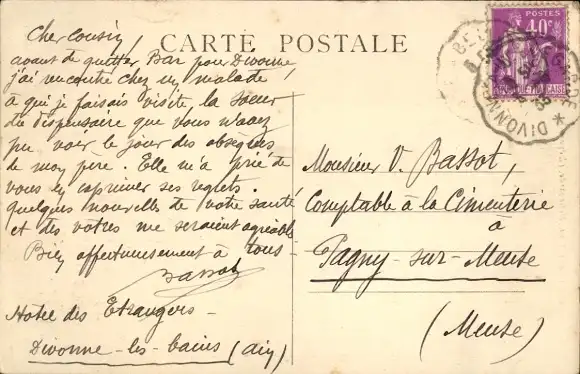 CARTE POSTALE
Cher Cousin,
avant de quitter Bar pour Divonne,
j'ai rencontré chez un malade,
à qui je faisais visite, la soeur
du dispensaire que vous n'avez
pu voir le jour des obsèques
de mon père. Elle m'a prié de
vous en exprimer ses regrets.
Quelques nouvelles de votre santé
et des vôtres me seraient agréables
Bien affectueusement à tous -
Bassot
Hotel des Etrangers -
Divonne-les-bains (Ain)
Monsieur V. Bassot,
Comptable à la Cimenterie
à
Pagny-sur-Meuse
(Meuse)
POSTES
40c
DIVONNE